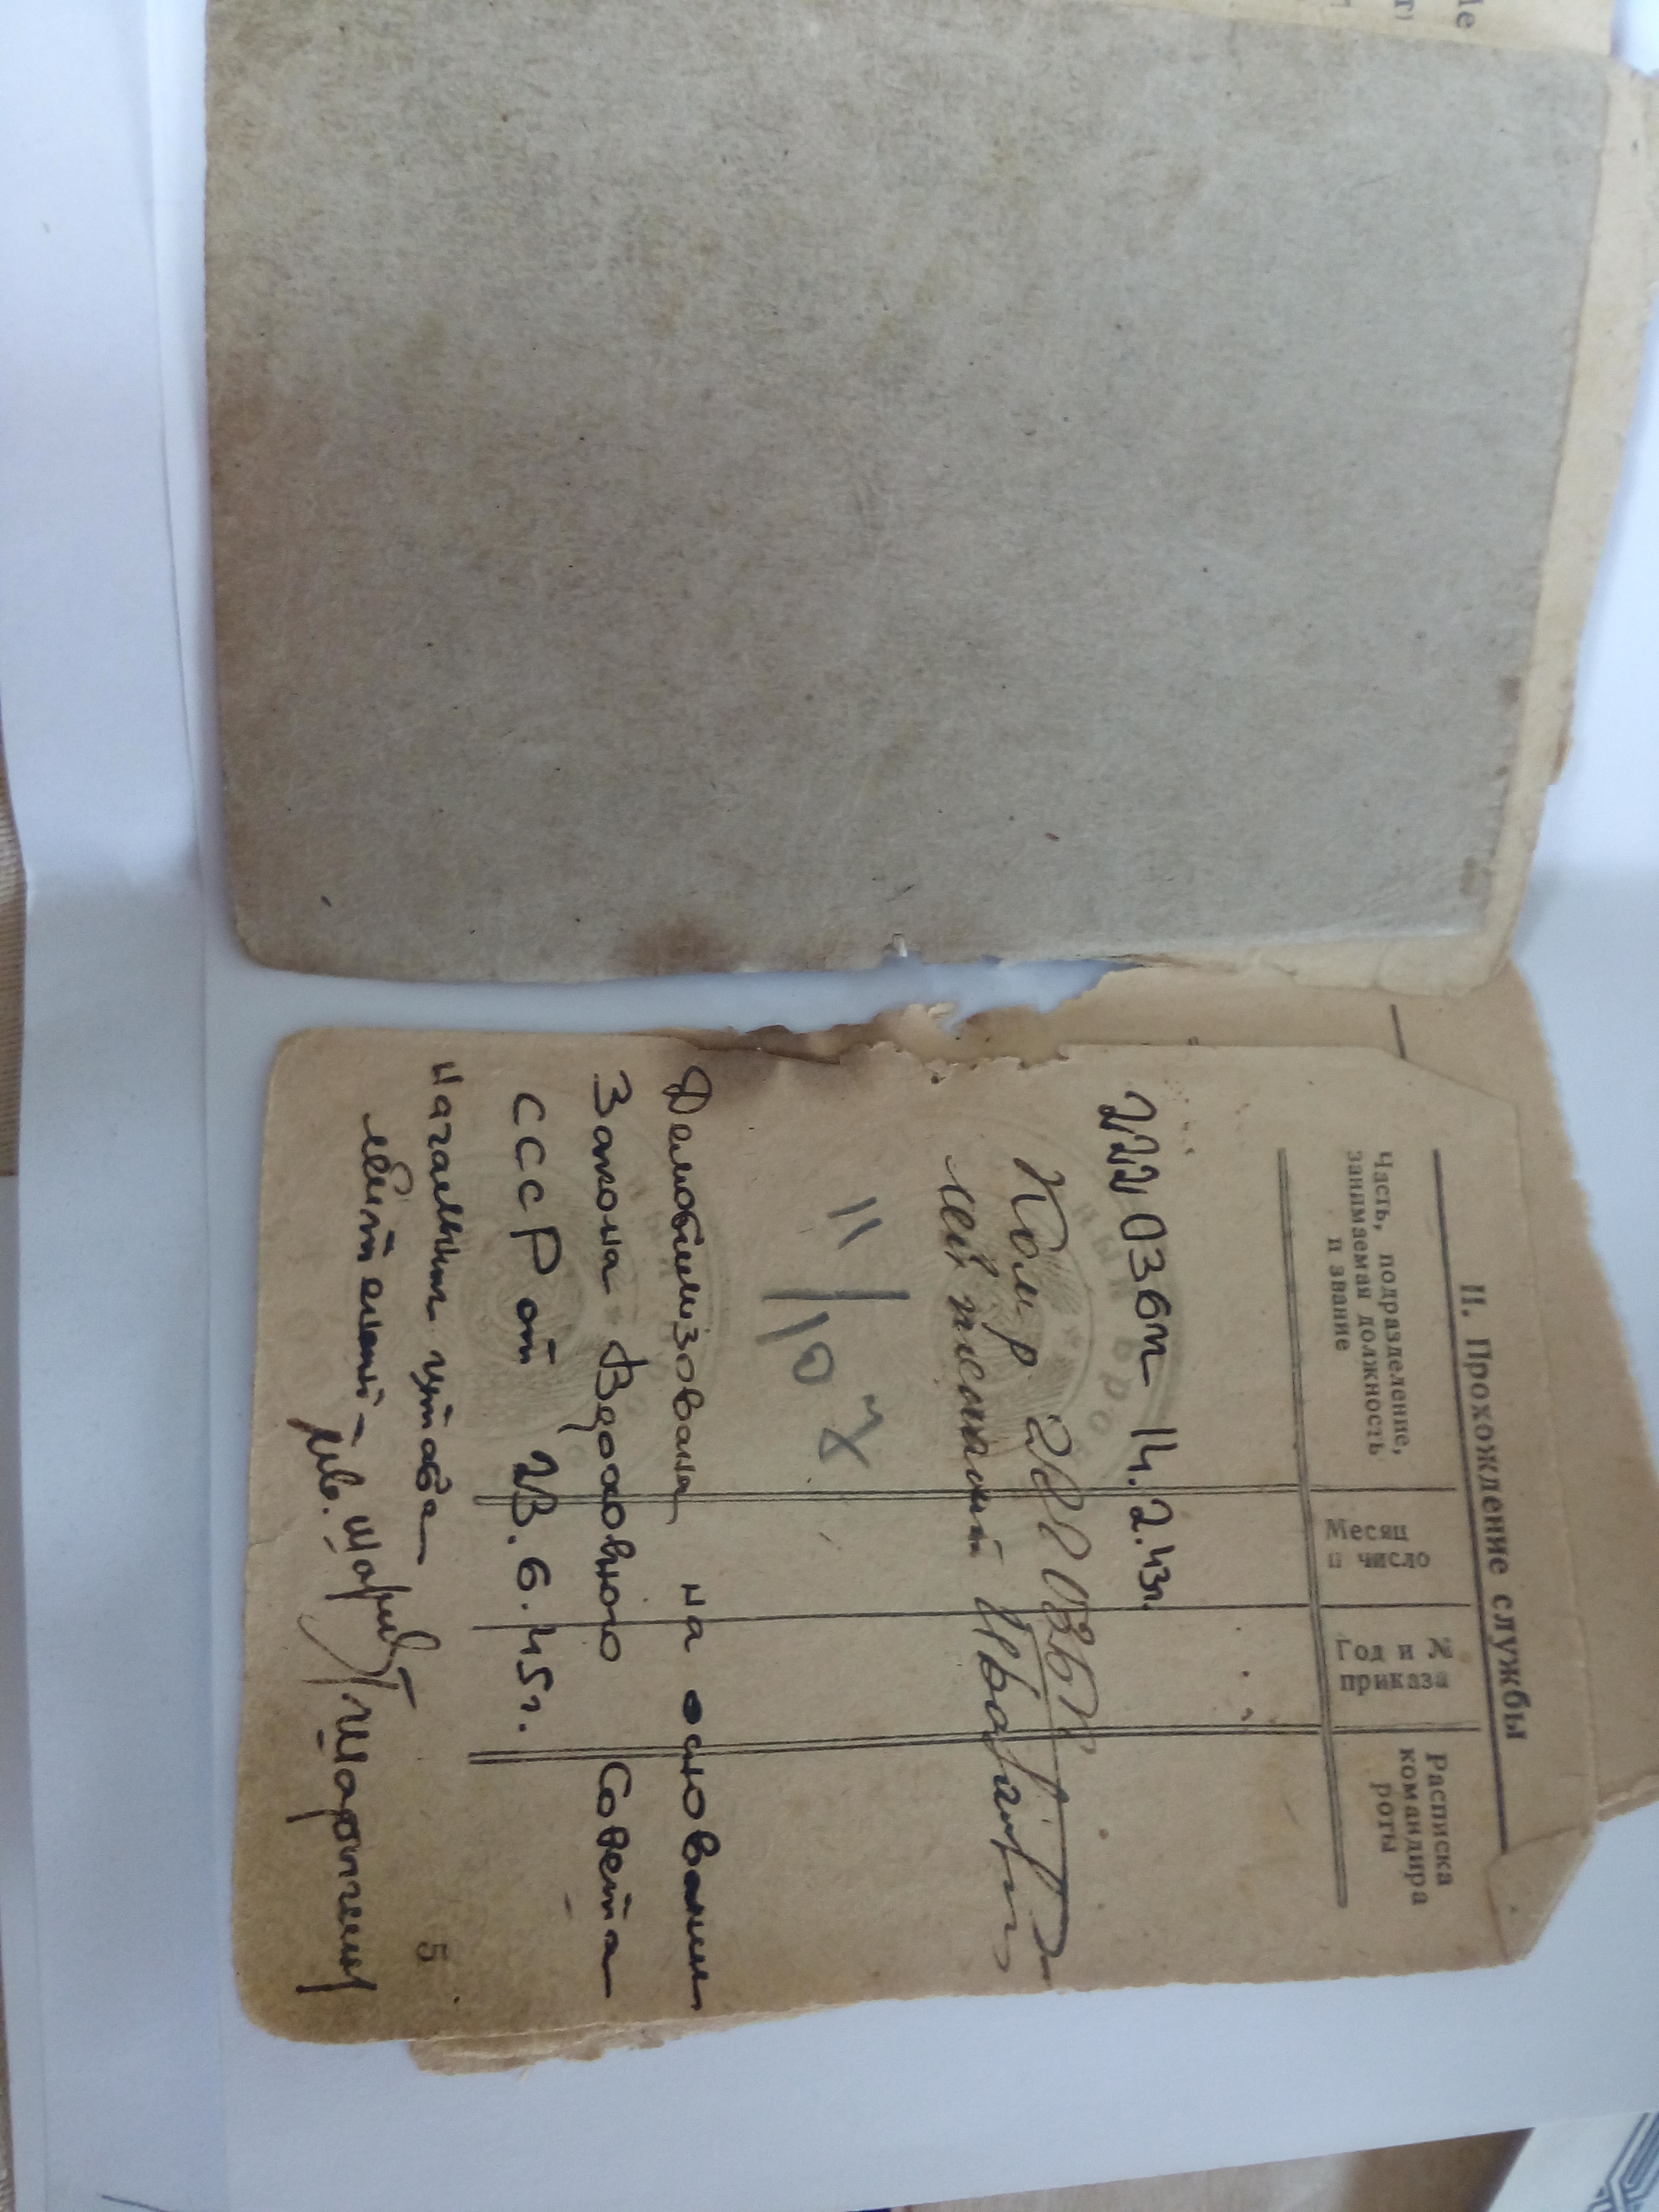 II. Прохождение службы
Часть, подразделение, занимаемая должность и звание
Месяц и число
Год и № приказа
Расписка командира роты
222 ОЗбп 14.2.43г.
Ком-р 222 ОЗБП
лейтенант
11/10
Демобилизована на основании
Закона Верховного Совета
СССР от 23.6.45г.
начальник штаба
лейтенант-
5